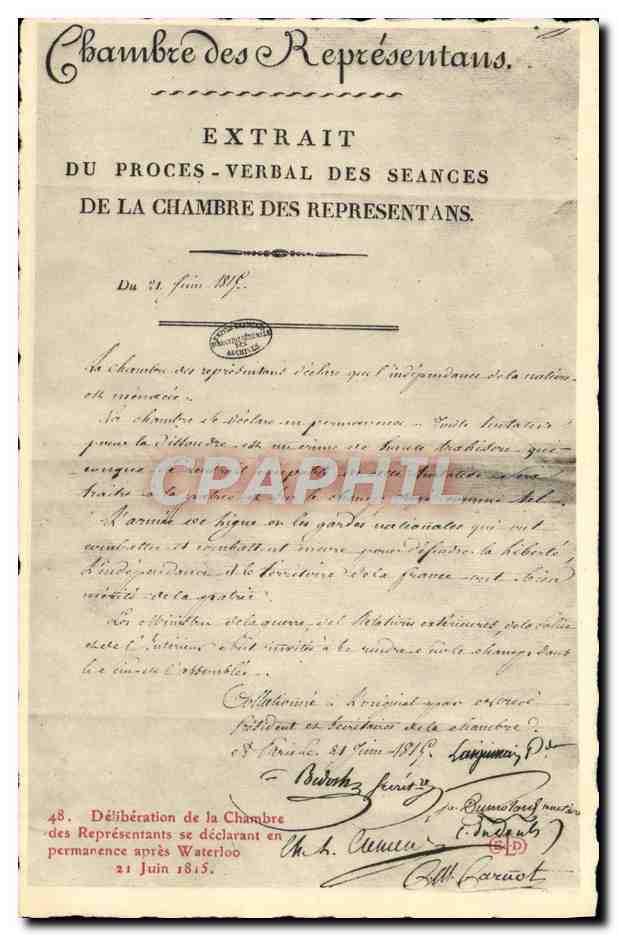 Chambre des Représentans.
EXTRAIT
DU PROCES-VERBAL DES SEANCES
DE LA CHAMBRE DES REPRESENTANS.
Du 21 Juin 1815.
ARCHIVES
La chambre des représentans déclare que l'indépendance de la nation
est menacée.
La chambre se déclare en permanence. Toute tentative
pour la dissoudre est un crime de haute trahison. qui-
conque se
traitre à la patrie
CPAPHIL.COM
L'armée de ligne et les gardes nationales qui ont
combattu et combattent encore pour défendre la liberté,
L'indépendance et le territoire de la france ont bien
mérité de la patrie.
Les Ministres de la guerre, des Relations extérieures, de la Police
et de l'Intérieur sont invités à se rendre sur le champ dans
le sein de l'assemblée.
Collationné à L'original par
Président et Secrétaires de la chambre.
à Paris Le 21 Juin 1815.
48. Délibération de la Chambre
des Représentants se déclarant en
permanence après Waterloo
21 Juin 1815.
Carnot